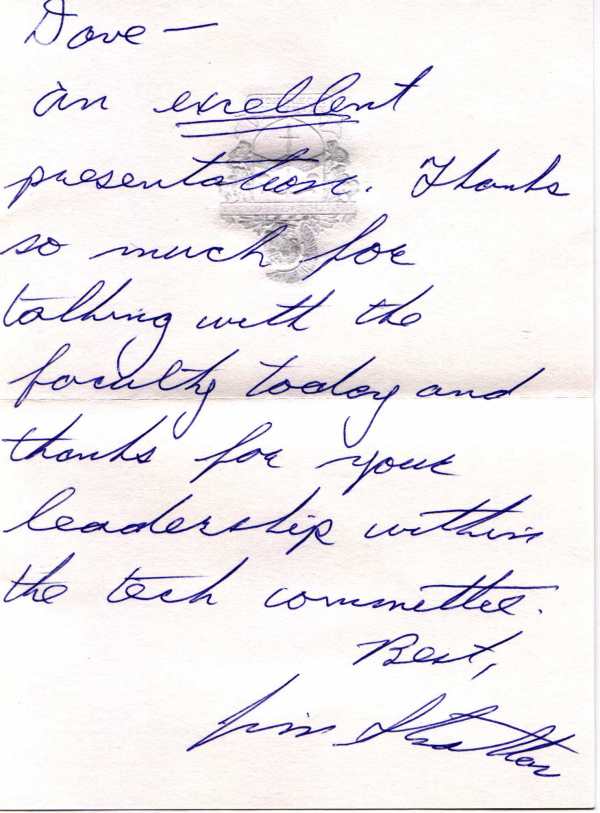 Dave —
an excellent
presentation. Thanks
so much for
talking with the
faculty today and
thanks for your
leadership within
the tech committee.
Best,
Jim Strattan